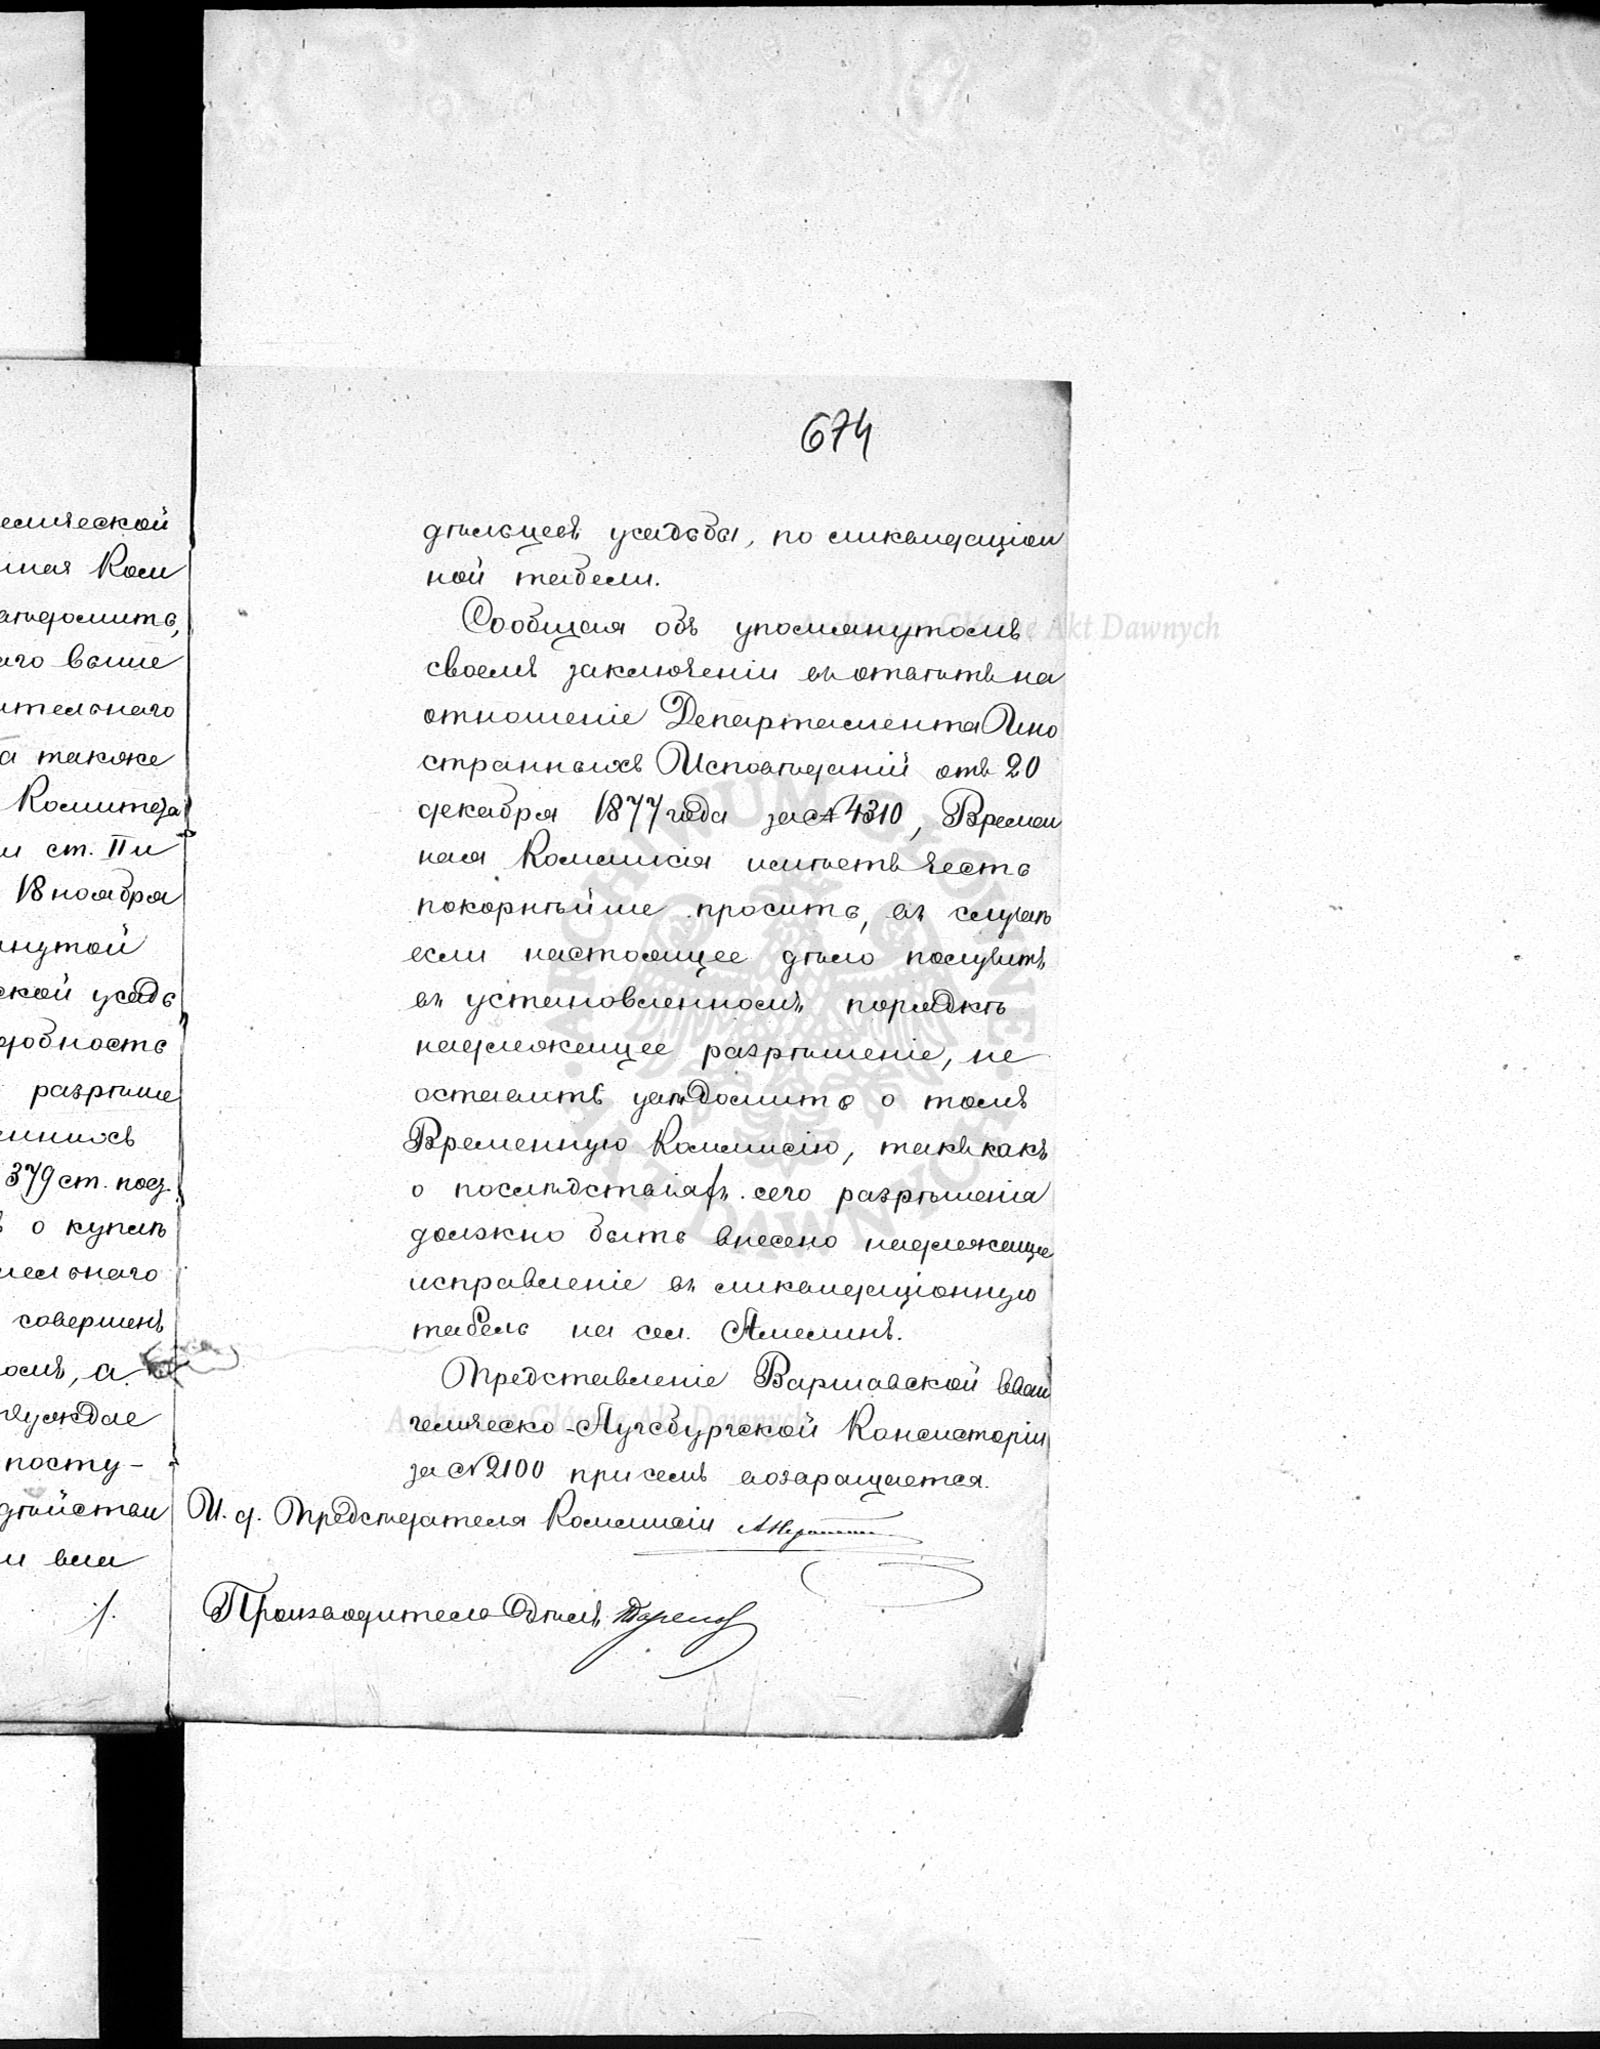 674
емческой
ная Ком
ведомить,
аго выше
ительнаго
а также
Комитета
и ст. II и
18 ноября
янутой
ской усадь
добность
разрѣше
нныхъ
379 ст. пол.
о куплѣ
тельнаго
совершенъ
омъ, а
нуждае
посту-
дѣйстви
и вли
дѣльцевъ усадьбы, по ликвидаціон
ной табели.
Сообщая объ упомянутомъ
своемъ заключеніи въ отвѣтъ на
отношеніе Департамента Ино
странныхъ Исповѣданій отъ 20
декабря 1877 года за № 4310, Времен
ная Коммисія имѣетъ честь
покорнѣйше просить, въ случаѣ
если настоящее дѣло получитъ
въ установленномъ порядкѣ
надлежащее разрѣшеніе, не
оставить увѣдомить о томъ
Временную Коммисію, такъ какъ
о послѣдствіяхъ сего разрѣшенія
должно быть внесено надлежащее
исправленіе въ ликвидаціонную
табель на сел. Амелинъ.
Представленіе Варшавской Еван
гелическо-Аугсбургской Консисторіи
за № 2100 при семъ возвращается.
И. д. Предсѣдателя Коммисіи
Производитель Дѣлъ
Archiwum Główne Akt Dawnych
ARCHIWUM GŁÓWNE AKT DAWNYCH
Archiwum Główne Akt Dawnych